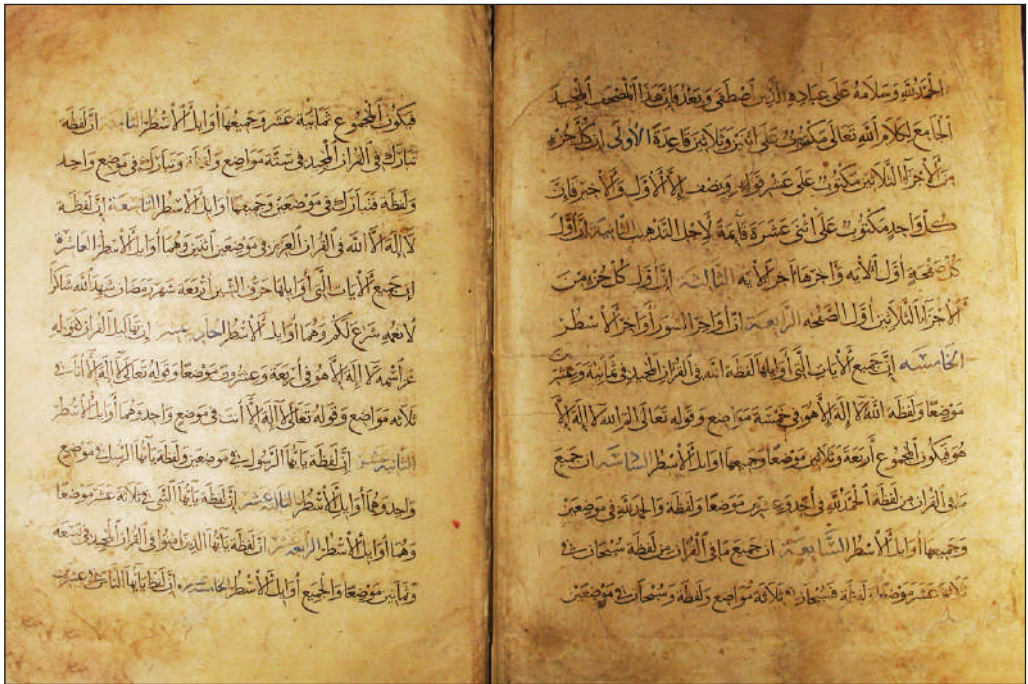 الحمد لله وسلامه على عباده الذين اصطفى وبعد فان هذا المصحف المجيد
الجامع لكلام الله تعالى مكتوب على اثنين وثلاثين قاعدة الأولى ان كل جزء
من الأجزاء الثلاثين مكتوب على عشر قوائم ونصف إلا الأول والأخير فان
كل واحد مكتوب على اثنى عشرة قآئمة لاجل التذهيب الثانية ان اول
كل صفحة اول الآيه وآخرها آخر الآيه الثالثة ان اول كل جزء من
الأجزآء الثلاثين اول الصفحه الرابعة ان أواخر السور أواخر الأسطر
الخامسة إن جميع الآيات التى أوايلها لفظة الله فى القران المجيد فى ثمانية وعشرين
موضعا ولفظه الله لا إله إلا هو فى خمسة مواضع وقوله تعالى الم الله لا إله إلا
هو فيكون المجموع أربعة وثلاثين موضعا وجميعها اوايل الأسطر السادسة ان جميع
ما فى القران من لفظة الحمد لله فى أحد وعشرين موضعا ولفظة والحمد لله فى موضعين
وجميعها اوايل الأسطر السابعة ان جميع ما فى القران من لفظة سبحان فى
ثلاثة عشر موضعا ولفظة فسبحان فى ثلاثة مواضع ولفظة وسبحان فى موضعين
فيكون المجموع ثمانية عشر وجميعها اوايل الأسطر الثامنة ان لفظة
تبارك فى القران المجيد فى ستة مواضع ولفظة وتبارك فى موضع واحد
ولفظة فتبارك فى موضعين وجميعها أوايل الأسطر التاسعة إن لفظة
لا إله إلا الله فى القران العزيز فى موضعين اثنين وهما أوايل الأسطر العاشرة
ان جميع الآيات التى أوايلها حرف الشين أربعة شهر رمضان شهد الله شاكرا
لانعمه شرع لكم وهما أوايل الأسطر الحادية عشر إن تهاليل القران كقوله
عز اسمه لا إله إلا هو فى أربعة وعشرون موضعا وقوله تعالى لا إله إلا أنا فى
ثلاثه مواضع وقوله تعالى لا إله إلا أنت فى موضع واحد وهما أوايل الأسطر
الثانية عشر ان لفظة يآ أيها الرسول فى موضعين ولفظة يآ أيها الرسل فى موضع
واحد وهما أوايل الأسطر الثالثة عشر إن لفظة يآ أيها النبى فى ثلاثة عشر موضعا
وهما أوايل الأسطر الرابعة عشر ان لفظة يآ أيها الذين امنوا فى القران المجيد فى تسعه
وثمانين موضعا والجميع أوايل الأسطر الخامسة عشر إن لفظ يآ أيها الناس فى عشرين